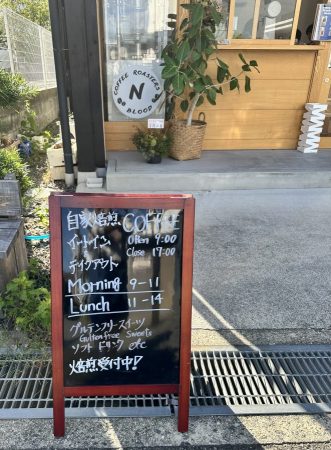 COFFEE ROASTERS
N
BLOOD
自家焙煎 COFFEE
イートイン Open 9:00
テイクアウト Close 17:00
Morning 9-11
Lunch 11-14
グルテンフリースイーツ
Gulten free Sweets
ソフトドリンク etc
焙煎受付中!